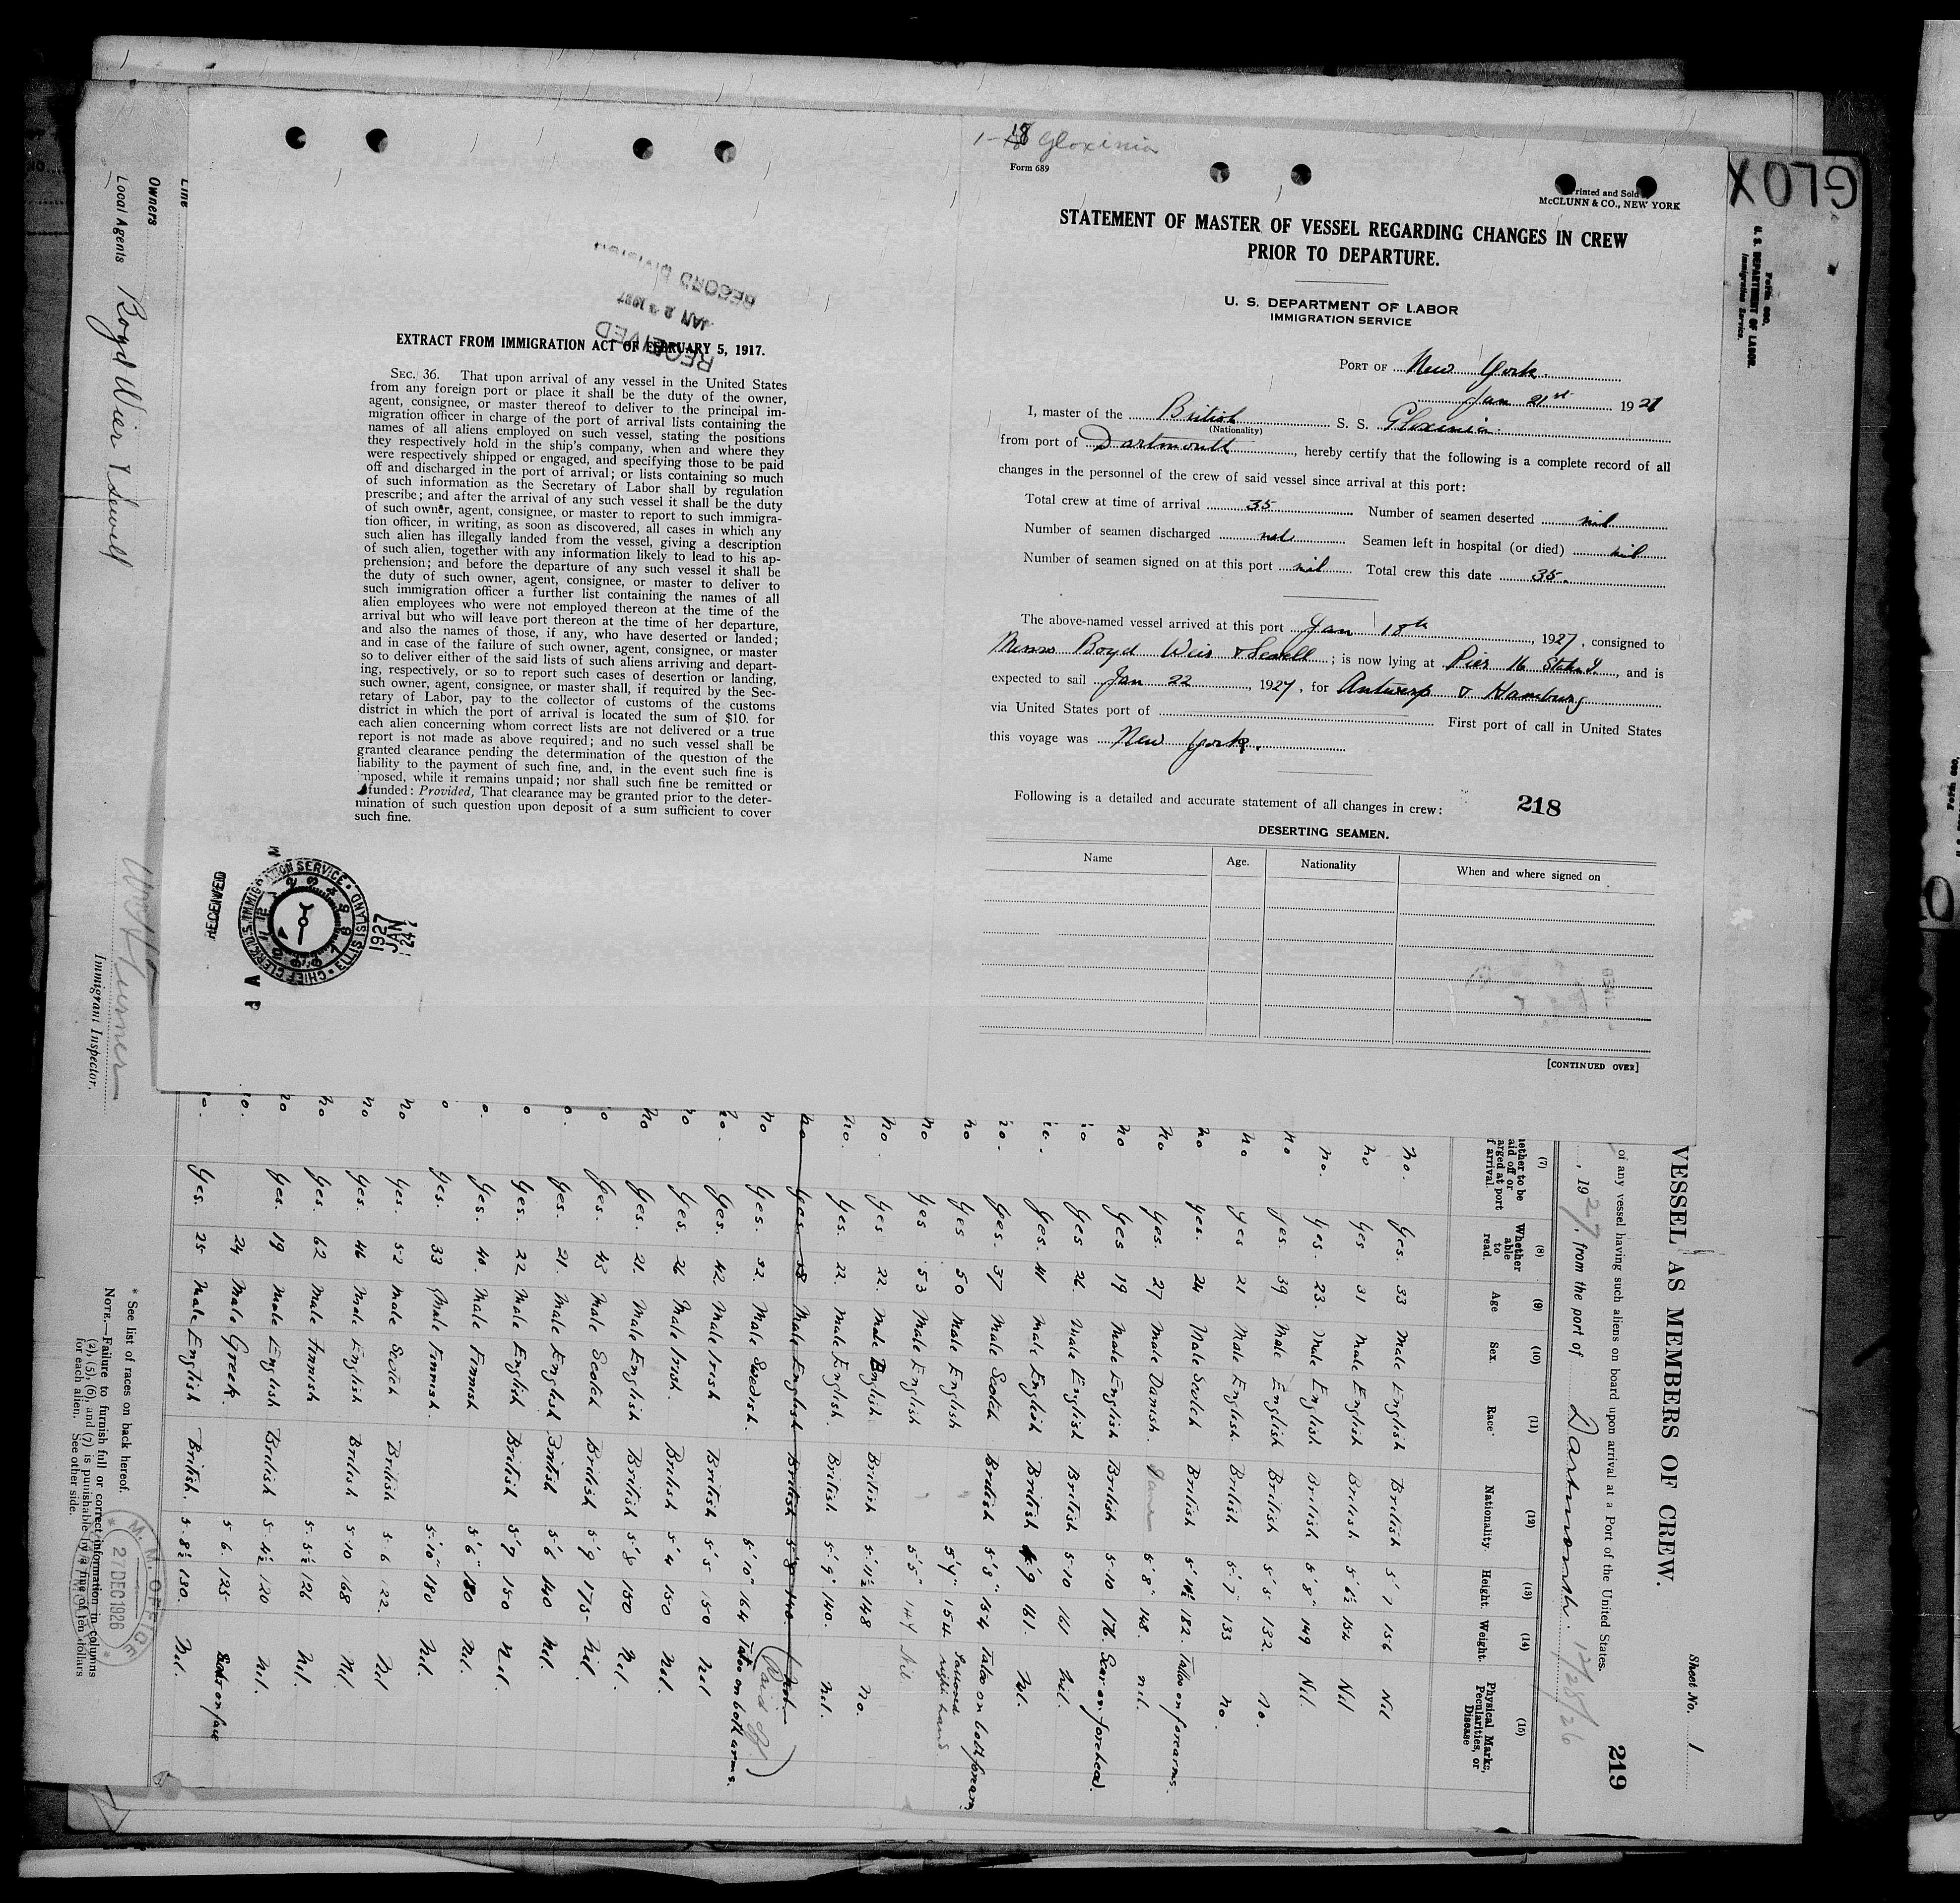 1-18 Gloxinia
Form 689
Printed and Sold
McCLUNN & CO., NEW YORK
STATEMENT OF MASTER OF VESSEL REGARDING CHANGES IN CREW
PRIOR TO DEPARTURE.
U. S. DEPARTMENT OF LABOR
IMMIGRATION SERVICE
PORT OF New York.
Jan 21st 1927
I, master of the British S. S. Gloxinia
(Nationality)
from port of Dartmouth, hereby certify that the following is a complete record of all
changes in the personnel of the crew of said vessel since arrival at this port:
Total crew at time of arrival 35 Number of seamen deserted nil
Number of seamen discharged nil Seamen left in hospital (or died) nil
Number of seamen signed on at this port nil Total crew this date 35.
The above-named vessel arrived at this port Jan 18th, 1927, consigned to
Messrs Boyd Weir & Sewell; is now lying at Pier 16 Staten I., and is
expected to sail Jan 22, 1927, for Antwerp & Hamburg
via United States port of First port of call in United States
this voyage was New York.
Following is a detailed and accurate statement of all changes in crew: 218
DESERTING SEAMEN.
Name Age. Nationality When and where signed on
[CONTINUED OVER]
RECEIVED
JAN 24 1927
RECORD DIVISION
EXTRACT FROM IMMIGRATION ACT OF FEBRUARY 5, 1917.
SEC. 36. That upon arrival of any vessel in the United States
from any foreign port or place it shall be the duty of the owner,
agent, consignee, or master thereof to deliver to the principal im-
migration officer in charge of the port of arrival lists containing the
names of all aliens employed on such vessel, stating the positions
they respectively hold in the ship's company, when and where they
were respectively shipped or engaged, and specifying those to be paid
off and discharged in the port of arrival; or lists containing so much
of such information as the Secretary of Labor shall by regulation
prescribe; and after the arrival of any such vessel it shall be the duty
of such owner, agent, consignee, or master to report to such immigra-
tion officer, in writing, as soon as discovered, all cases in which any
such alien has illegally landed from the vessel, giving a description
of such alien, together with any information likely to lead to his ap-
prehension; and before the departure of any such vessel it shall be
the duty of such owner, agent, consignee, or master to deliver to
such immigration officer a further list containing the names of all
alien employees who were not employed thereon at the time of the
arrival but who will leave port thereon at the time of her departure,
and also the names of those, if any, who have deserted or landed;
and in case of the failure of such owner, agent, consignee, or master
so to deliver either of the said lists of such aliens arriving and depart-
ing, respectively, or so to report such cases of desertion or landing,
such owner, agent, consignee, or master shall, if required by the Sec-
retary of Labor, pay to the collector of customs of the customs
district in which the port of arrival is located the sum of $10. for
each alien concerning whom correct lists are not delivered or a true
report is not made as above required; and no such vessel shall be
granted clearance pending the determination of the question of the
liability to the payment of such fine, and, in the event such fine is
imposed, while it remains unpaid; nor shall such fine be remitted or
funded: Provided, That clearance may be granted prior to the deter-
mination of such question upon deposit of a sum sufficient to cover
such fine.
RECEIVED
CHIEF CLERK, U.S. IMMIGRATION SERVICE • ELLIS ISLAND
1927
JAN
24
GLOX
Form 680.
U. S. DEPARTMENT OF LABOR
Immigration Service.
VESSEL AS MEMBERS OF CREW.
Sheet No. 1
of any vessel having such aliens on board upon arrival at a Port of the United States.
219
, 1927, from the port of Dartmouth. 12/28/26
(7) (8) (9) (10) (11) (12) (13) (14) (15)
Whether able to read. Age Sex Race* Nationality Height Weight. Physical Marks, Peculiarities, or Disease
no. Yes. 33 Male English British 5'7 156 Nil
no Yes 31 Male English British 5'6½ 154 Nil
no. Yes. 23. Male English British 5'8" 149 Nil.
no Yes. 39 Male English British 5'5 132. no.
no Yes 21 Male English. British 5'7" 133 no.
no Yes. 24 Male Scotch British 5'10½ 182. Tattoo on forearms.
no Yes. 27 Male Danish. Dane 5'8" 148. nil.
no Yes 19 Male English British 5-10 176. Scar on forehead.
no Yes 26. Male English British 5-10 161 Nil.
Yes. 41 Male English British 5'9 161. Nil.
Yes. 37 Male Scotch British 5'8" 154 Tatoo on both forearms
no Yes 50 Male English 5'4" 154 Tattooed right hand
no Yes 53 Male English 5'5" 147 Nil.
no. Yes 22. Male English. British 5-11½ 148 no.
no. Yes. 22. Male English British. 5'9" 140. Nil.
no Yes 38 Male English British 5'8 140 (Paid off)
no Yes. 32. Male Swedish. 5'10" 164 Tatoo on both arms.
no. Yes. 42 Male Irish British 5'5 150 Nil
no Yes. 26 Male Irish. British 5'4 150 Nil.
no Yes. 21. Male English British 5'8 150 Nil.
no Yes. 43 Male Scotch British 5'9 175 Nil.
Yes. 21. Male English British 5'6 140 Nil.
Yes. 22 Male English British 5'7 150 Nil.
Yes. 40. Male Finnish 5'6" 180 Nil.
Yes. 33 Male Finnish. 5'10" 180 Nil.
no Yes. 52 Male Scotch British 5-6 122. Nil
no Yes. 46 Male English British 5-10 168 Nil
no Yes. 62 Male Finnish 5-5½ 126 Nil.
no Yes. 19 Male English British 5-4½ 120 Nil.
24 Male Greek. 5 6. 125 Scar on face
Yes. 25 Male English British. 5-8½ 130. Nil.
Line
Owners
Local Agents Boyd Weir & Sewell
Immigrant Inspector.
* See list of races on back hereof.
NOTE.—Failure to furnish full or correct information in columns
(2), (5), (6), and (7) is punishable by a fine of ten dollars
for each alien. See other side.
M. M. OFFICE
27 DEC 1926